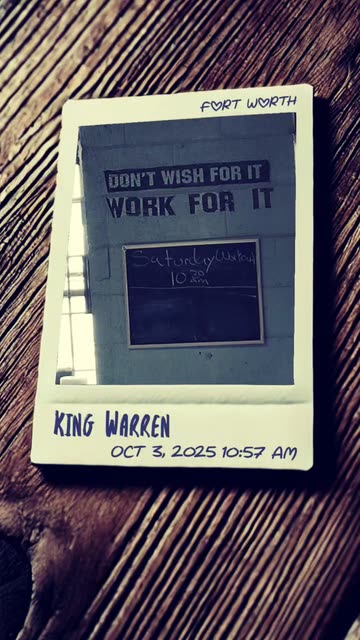 FORT WORTH
DON'T WISH FOR IT
WORK FOR IT
Saturday Workout
10 30 am
KING WARREN
OCT 3, 2025 10:57 AM